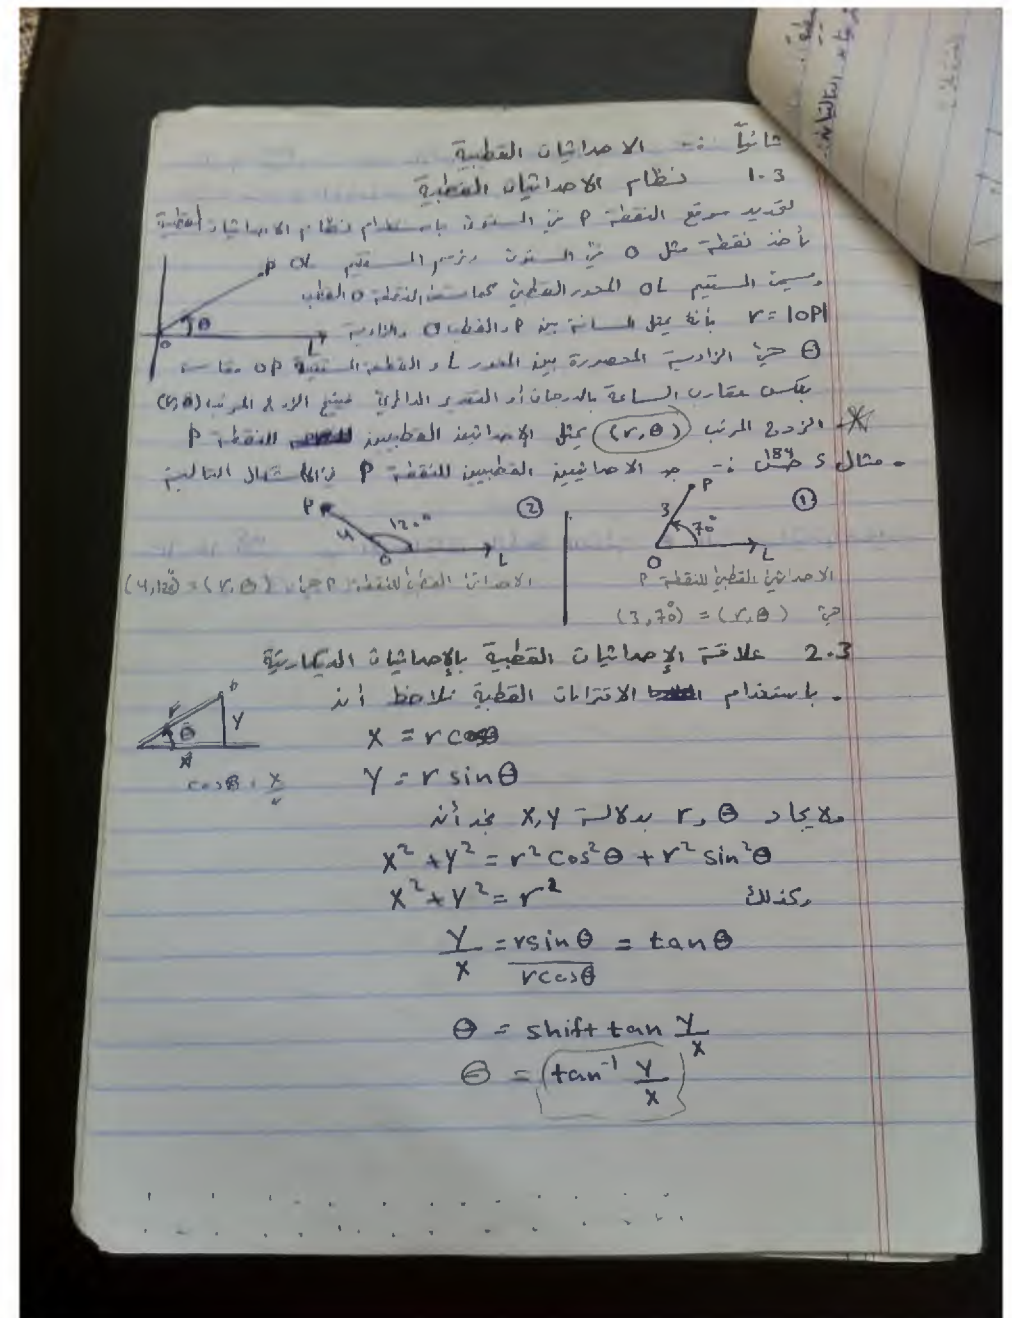 ثانياً :- الاحداثيات القطبية
1.3 نظام الاحداثيات القطبية
لتحديد موقع النقطة P في المستوى باستخدام نظام الاحداثيات القطبية
نأخذ نقطة مثل O في المستوى ونرسم المستقيم OL
ويسمى المستقيم OL المحور القطبي كما تسمى النقطة O القطب
r = |OP| بأنه يمثل المسافة بين P والقطب O والزاوية
θ هي الزاوية المحصورة بين المحور L و القطعة المستقيمة OP مقاسة
بعكس عقارب الساعة بالدرجات أو التقدير الدائري فينتج الزوج المرتب (r,θ)
P
θ
O
L
الزوج المرتب (r,θ) يمثل الإحداثيين القطبيين للنقطة P
مثال 5 ص 184 :- جد الاحداثيين القطبيين للنقطة P في الاشكال التالية
①
P
3
70°
O
L
الاحداثي القطبي للنقطة P
هي (r,θ) = (3,70°)
②
P
4
120°
O
L
الاحداثي القطبي للنقطة P هي (r,θ) = (4,120°)
2.3 علاقة الإحداثيات القطبية بالإحداثيات الديكارتية
. باستخدام الاقترانات القطبية نلاحظ أنه
r
θ
x
y
cosθ = x/r
x = r cosθ
y = r sinθ
ولايجاد r, θ بدلالة x,y نجد أنه
x² + y² = r² cos²θ + r² sin²θ
x² + y² = r²
وكذلك
y/x = r sinθ / r cosθ = tanθ
θ = shift tan y/x
θ = tan⁻¹ y/x